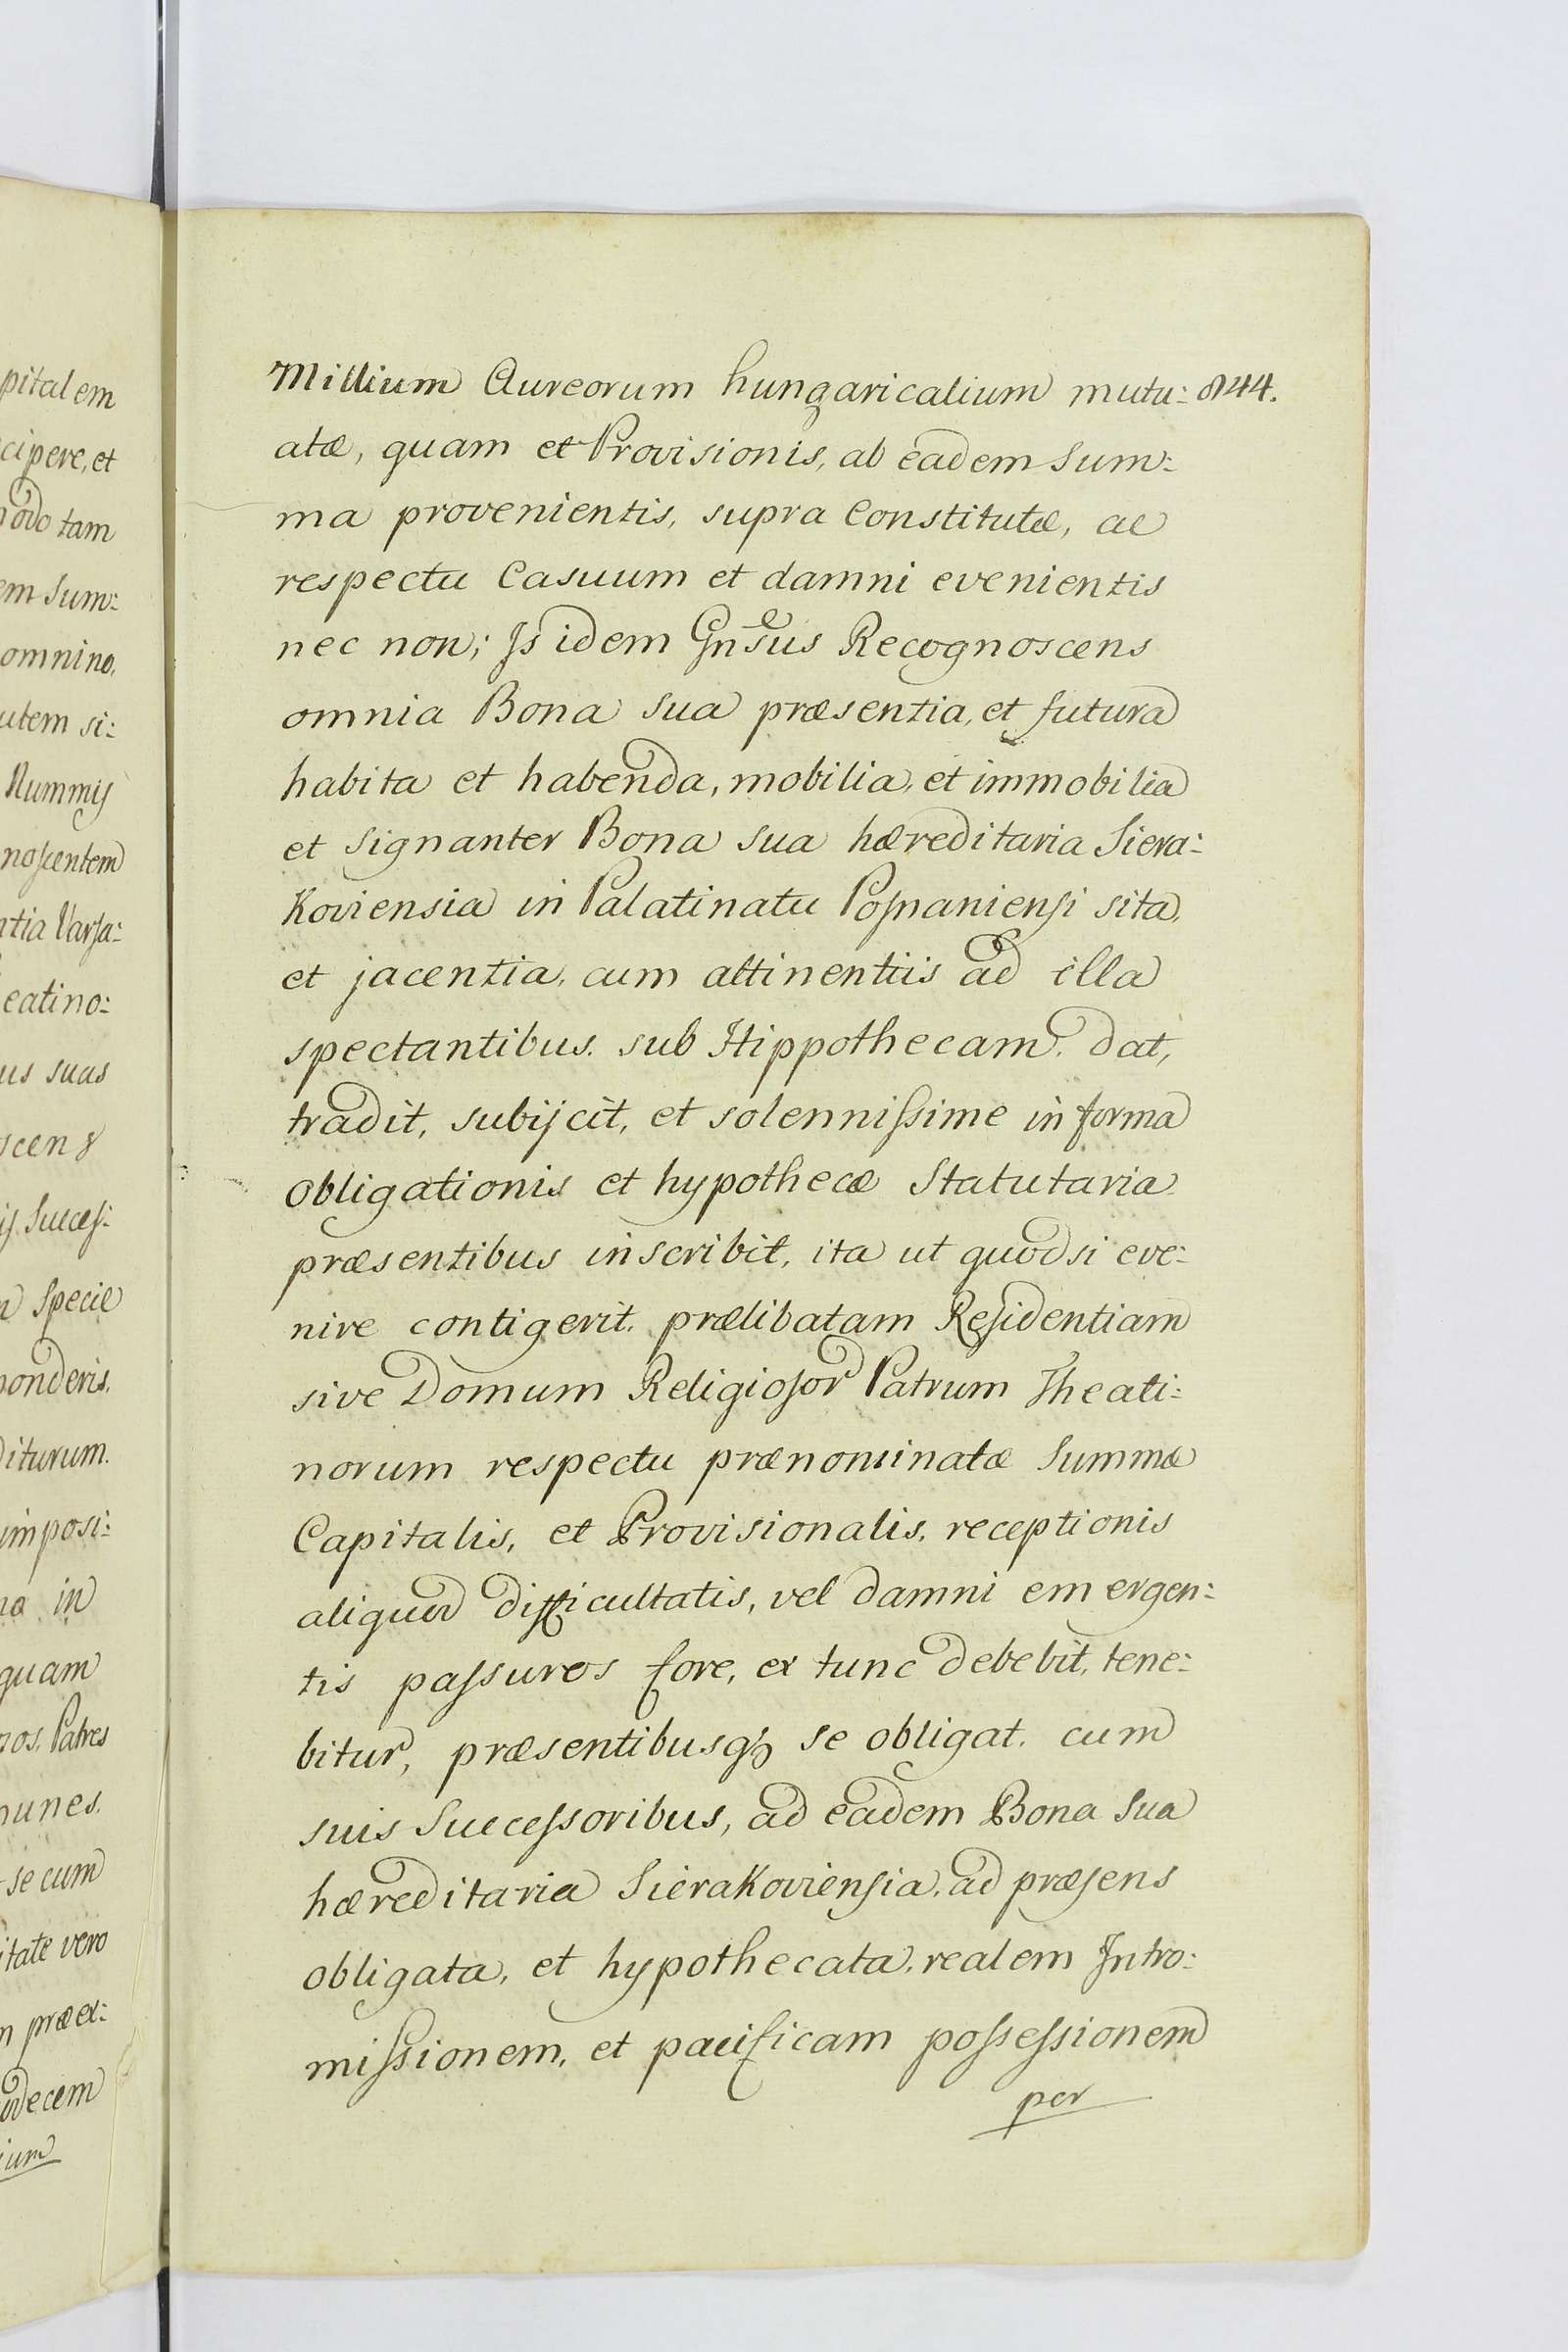 Millium Aureorum hungaricalium mutu: 844.
atæ, quam et Provisionis, ab eadem Sum:
ma provenientis, supra Constitutæ, ac
respectu Casuum et damni evenientis
nec non; Is idem Gnsus Recognoscens
omnia Bona sua præsentia, et futura
habita et habenda, mobilia, et immobilia
et signanter Bona sua hæreditaria Siera:
Koviensia in Palatinatu Posnaniensi sita,
et jacentia, cum attinentiis ad illa
spectantibus. sub Hippothecam. dat,
tradit, subijcit, et solennissime in forma
obligationis et hypothecæ Statutaria
præsentibus inscribit, ita ut quodsi eve:
nire contigerit. prælibatam Residentiam
sive Domum Religiosor Patrum Theati:
norum respectu prænominatæ Summæ
Capitalis, et Provisionalis, receptionis
aliquod difficultatis, vel damni emergen:
tis passuros fore, ex tunc debebit, tene:
bitur, præsentibusqз se obligat. cum
suis Successoribus, ad eadem Bona sua
hæreditaria Sierakoviensia, ad præsens
obligata, et hypothecata, realem Intro:
missionem, et pacificam possessionem
per
pitalem
cipere, et
modo tam
em Sum:
omnino,
utem si:
Nummis
noscentem
ntia Varsa:
eatino:
us suas
scens
is Succes:
n specie
ponderis,
diturum.
imposi:
na in
quam
nos, Patres
munes.
se cum
itate vero
m præex:
odecem
ium